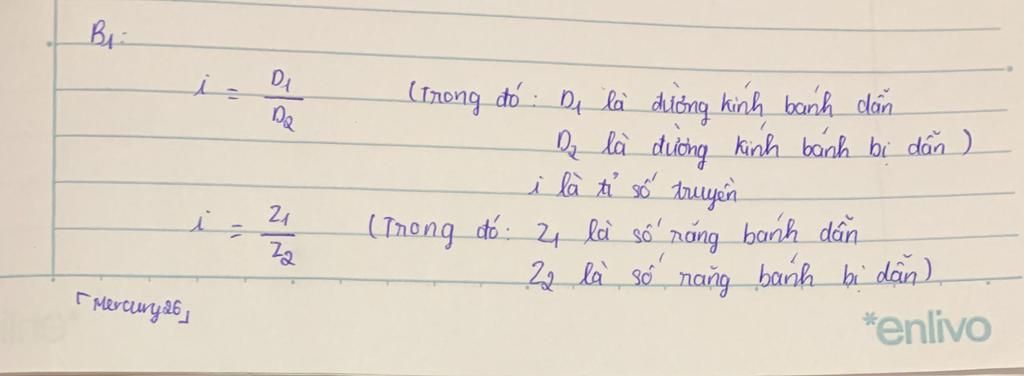 B1:
i = D1/D2 (Trong đó: D1 là đường kính bánh dẫn
D2 là đường kính bánh bị dẫn)
i là tỉ số truyền
i = Z1/Z2 (Trong đó: Z1 là số răng bánh dẫn
Z2 là số răng bánh bị dẫn)
「Mercury26」
*enlivo